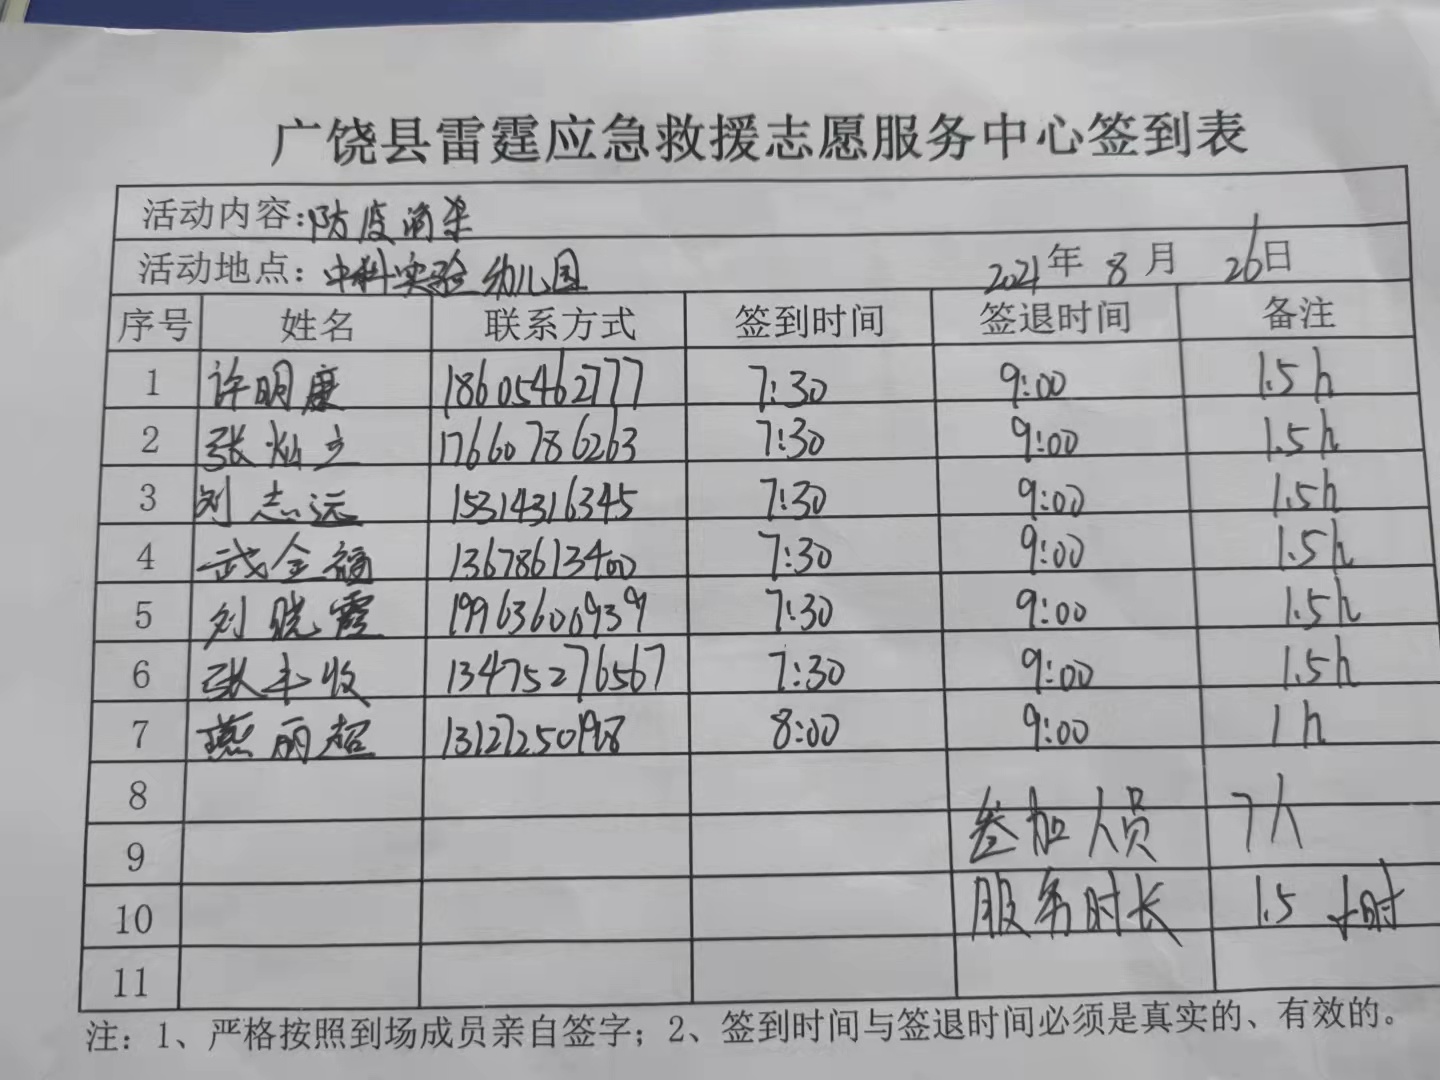 广饶县雷霆应急救援志愿服务中心签到表
活动内容:防疫消杀
活动地点:中科实验幼儿园 2021年8月26日
序号 姓名 联系方式 签到时间 签退时间 备注
1 许明康 18605462777 7:30 9:00 1.5h
2 张灿立 17660786263 7:30 9:00 1.5h
3 刘志远 15314316345 7:30 9:00 1.5h
4 武金福 13678613400 7:30 9:00 1.5h
5 刘晓霞 19963600939 7:30 9:00 1.5h
6 张丰收 13475276567 7:30 9:00 1.5h
7 燕丽超 8:00 9:00 1h
8
9 参加人员 7人
10 服务时长 1.5小时
11
注:1、严格按照到场成员亲自签字;2、签到时间与签退时间必须是真实的、有效的。